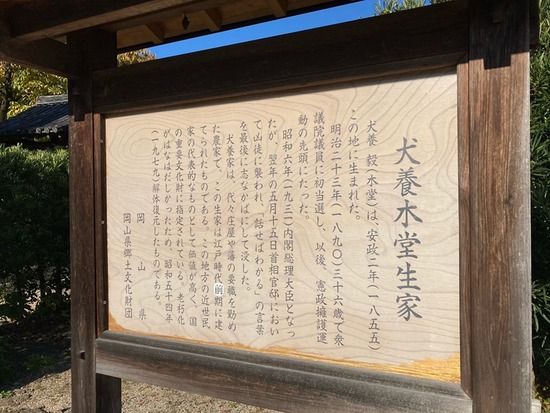 犬養木堂生家
犬養　毅（木堂）は、安政二年（一八五五）
この地に生まれた。
明治二十三年（一八九〇）三十六歳で衆
議院議員に初当選し、以後、憲政擁護運
動の先頭にたった。
昭和六年（一九三一）内閣総理大臣となっ
たが、翌年の五月十五日首相官邸におい
て凶徒に襲われ、「話せばわかる」の言葉
を最後に志なかばにして没した。
犬養家は、代々庄屋や藩の要職を勤め
た農家で、この生家は江戸時代前期に建
てられたものである。この地方の近世民
家の代表的なものとして価値が高く、国
の重要文化財に指定されている。老朽化
がはなはだしかったため、昭和五十四年
（一九七九）解体復元したものである。
岡山県
岡山県郷土文化財団